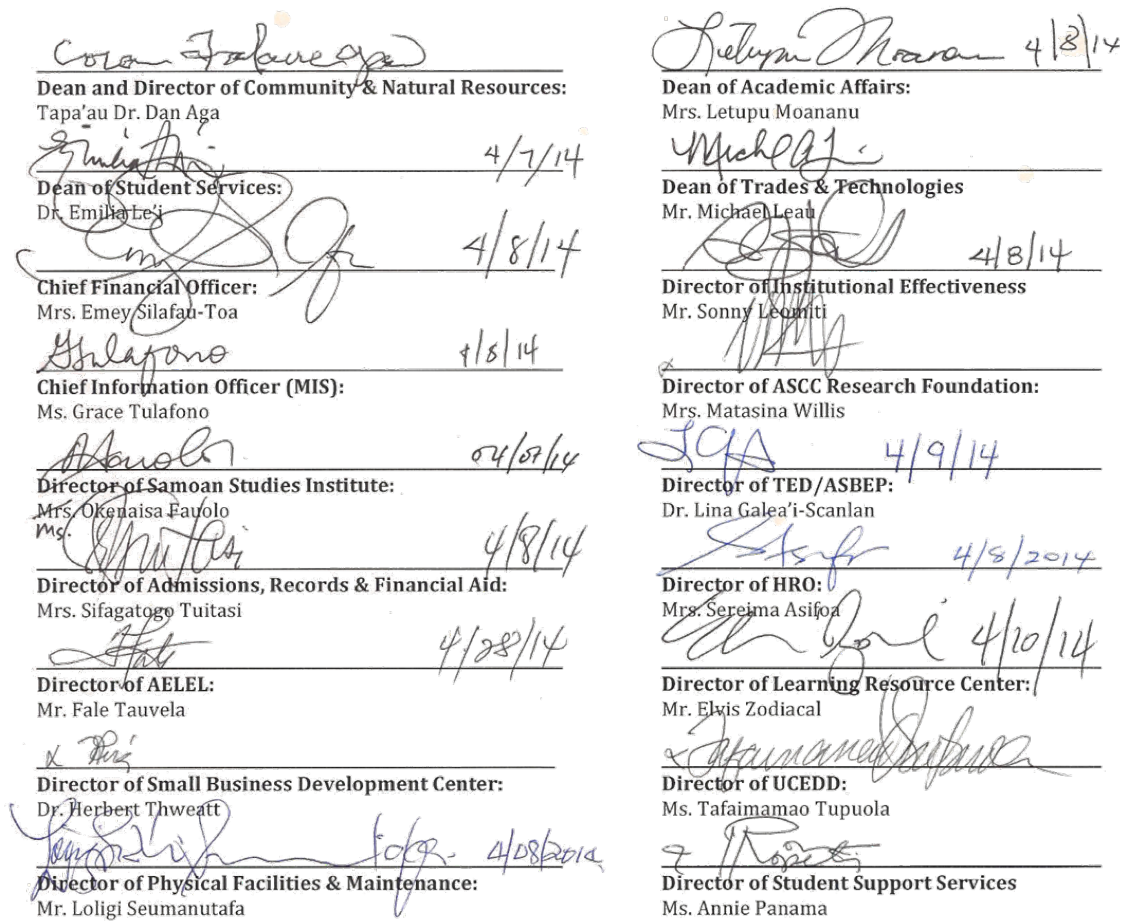 Dean and Director of Community & Natural Resources:
Tapa'au Dr. Dan Aga
4/7/14
Dean of Student Services:
Dr. Emilia Le'i
4/8/14
Chief Financial Officer:
Mrs. Emey Silafau-Toa
GTulafono 4/8/14
Chief Information Officer (MIS):
Ms. Grace Tulafono
04/07/14
Director of Samoan Studies Institute:
Mrs. Okenaisa Fauolo
Ms. 4/8/14
Director of Admissions, Records & Financial Aid:
Mrs. Sifagatogo Tuitasi
4/28/14
Director of AELEL:
Mr. Fale Tauvela
Director of Small Business Development Center:
Dr. Herbert Thweatt
4/08/2014
Director of Physical Facilities & Maintenance:
Mr. Loligi Seumanutafa
Letupu Moananu 4/8/14
Dean of Academic Affairs:
Mrs. Letupu Moananu
Dean of Trades & Technologies
Mr. Michael Leau
4/8/14
Director of Institutional Effectiveness
Mr. Sonny Leomiti
Director of ASCC Research Foundation:
Mrs. Matasina Willis
4/9/14
Director of TED/ASBEP:
Dr. Lina Galea'i-Scanlan
4/8/2014
Director of HRO:
Mrs. Sereima Asifoa
4/10/14
Director of Learning Resource Center:
Mr. Elvis Zodiacal
Director of UCEDD:
Ms. Tafaimamao Tupuola
Director of Student Support Services
Ms. Annie Panama